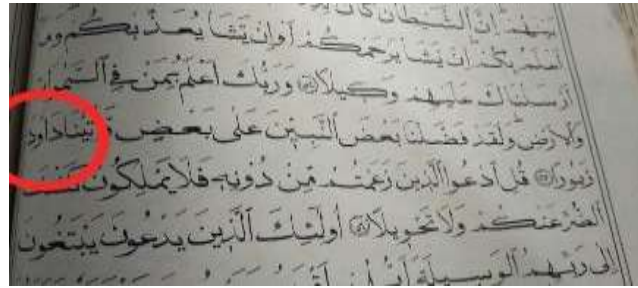 بَيْنَهُمْ إِنَّ ٱلشَّيْطَانَ كَانَ
أَعْلَمُ بِكُمْ إِن يَشَأْ يَرْحَمْكُمْ أَوْ إِن يَشَأْ يُعَذِّبْكُمْ وَمَا
أَرْسَلْنَاكَ عَلَيْهِمْ وَكِيلًا ۝٥٤ وَرَبُّكَ أَعْلَمُ بِمَنْ فِي ٱلسَّمَٰوَٰتِ
وَٱلْأَرْضِ وَلَقَدْ فَضَّلْنَا بَعْضَ ٱلنَّبِيِّنَ عَلَى بَعْضٍ وَءَاتَيْنَا دَاوُدَ
زَبُورًا ۝٥٥ قُلِ ٱدْعُوا ٱلَّذِينَ زَعَمْتُمْ مِّن دُونِهِ فَلَا يَمْلِكُونَ كَشْفَ
ٱلضُّرِّ عَنكُمْ وَلَا تَحْوِيلًا ۝٥٦ أُولَٰئِكَ ٱلَّذِينَ يَدْعُونَ يَبْتَغُونَ
إِلَى رَبِّهِمُ ٱلْوَسِيلَةَ أَيُّهُمْ